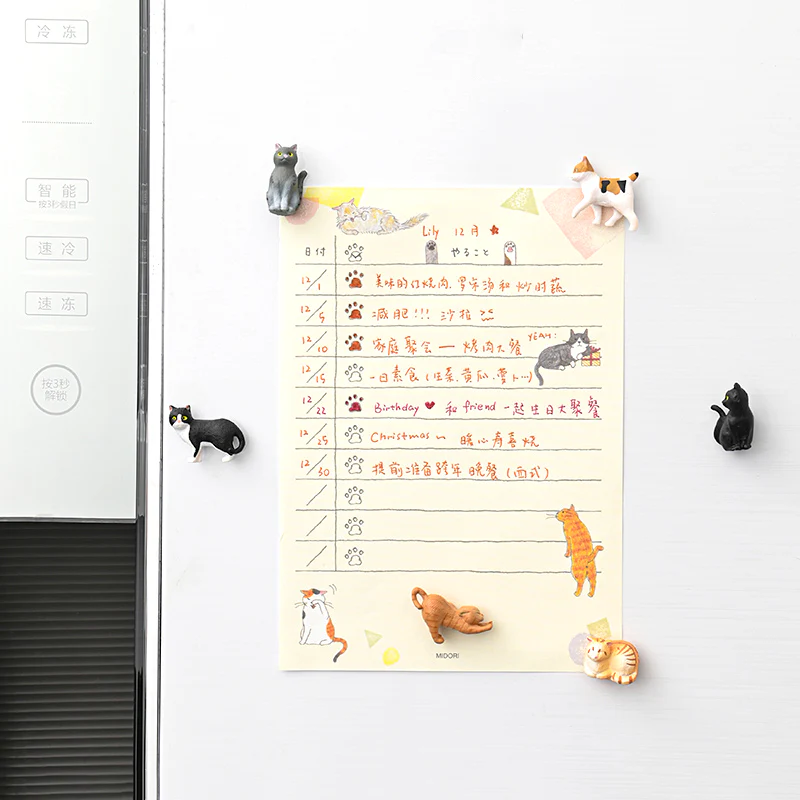 冷冻
智能
按3秒假日
速冷
速冻
按3秒
解锁
Lily 12月
日付 やること
12/1 美味的红烧肉.罗宋汤和炒时蔬
12/5 减肥!!! 沙拉
12/10 家庭聚会 — 烤肉大餐 YEAH!
12/15 一日素食(生菜.黄瓜.萝卜…)
12/22 Birthday ♥ 和 friend 一起生日大聚餐
12/25 Christmas ~ 暖心寿喜烧
12/30 提前准备跨年晚餐(西式)
/
/
/
MIDORI